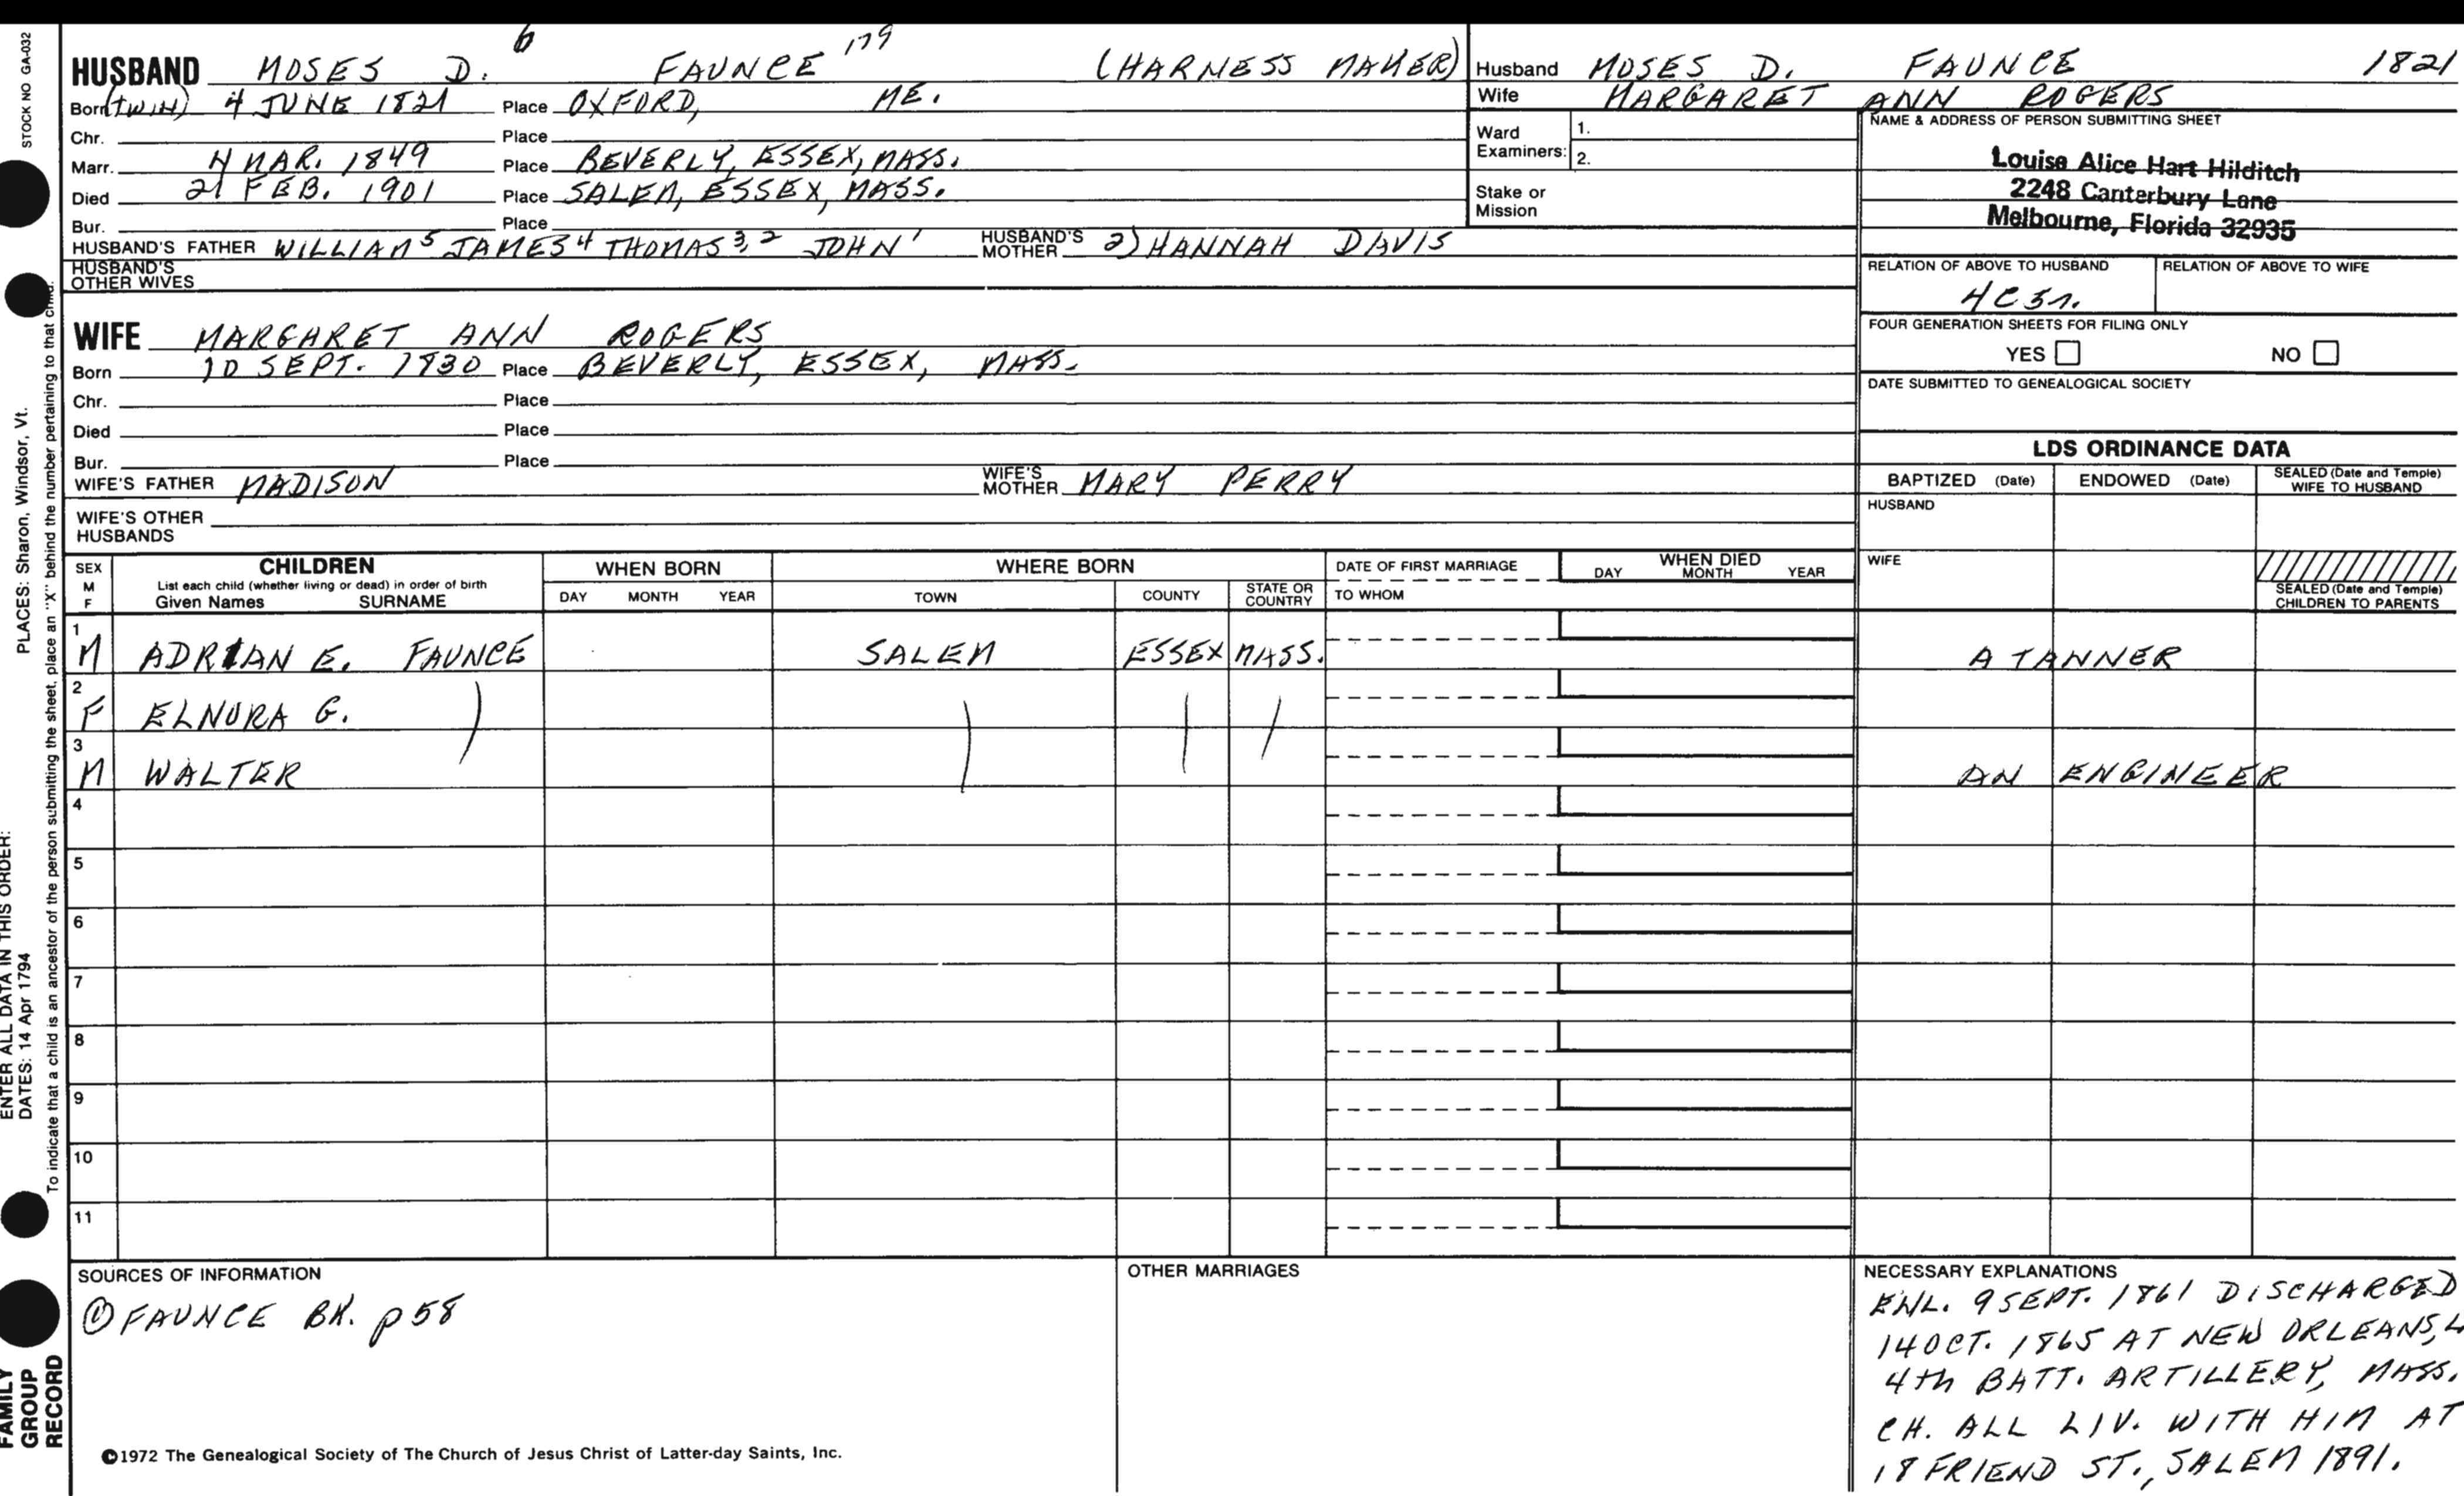 STOCK NO GA-032
HUSBAND MOSES D. 6 FAUNCE 179 (HARNESS MAKER)
Born (TWIN) 4 JUNE 1821 Place OXFORD, ME.
Chr. Place
Marr. 4 MAR. 1849 Place BEVERLY, ESSEX, MASS.
Died 21 FEB. 1901 Place SALEM, ESSEX, MASS.
Bur. Place
HUSBAND'S FATHER WILLIAM 5 JAMES 4 THOMAS 3, 2 JOHN 1 HUSBAND'S MOTHER 2) HANNAH DAVIS
HUSBAND'S OTHER WIVES
WIFE MARGARET ANN ROGERS
Born 10 SEPT. 1830 Place BEVERLY, ESSEX, MASS.
Chr. Place
Died Place
Bur. Place
WIFE'S FATHER MADISON WIFE'S MOTHER MARY PERRY
WIFE'S OTHER HUSBANDS
Husband MOSES D. FAUNCE 1821
Wife MARGARET ANN ROGERS
Ward Examiners: 1.
2.
Stake or Mission
NAME & ADDRESS OF PERSON SUBMITTING SHEET
Louise Alice Hart Hilditch
2248 Canterbury Lane
Melbourne, Florida 32935
RELATION OF ABOVE TO HUSBAND RELATION OF ABOVE TO WIFE
4C3r.
FOUR GENERATION SHEETS FOR FILING ONLY
YES NO
DATE SUBMITTED TO GENEALOGICAL SOCIETY
LDS ORDINANCE DATA
BAPTIZED (Date) ENDOWED (Date) SEALED (Date and Temple) WIFE TO HUSBAND
HUSBAND
WIFE
SEALED (Date and Temple) CHILDREN TO PARENTS
SEX M F CHILDREN WHEN BORN WHERE BORN DATE OF FIRST MARRIAGE WHEN DIED
List each child (whether living or dead) in order of birth
Given Names SURNAME DAY MONTH YEAR TOWN COUNTY STATE OR COUNTRY TO WHOM DAY MONTH YEAR
1 M ADRIAN E. FAUNCE SALEM ESSEX MASS. A TANNER
2 F ELNORA G.
3 M WALTER AN ENGINEER
4
5
6
7
8
9
10
11
SOURCES OF INFORMATION
① FAUNCE BK. p 58
©1972 The Genealogical Society of The Church of Jesus Christ of Latter-day Saints, Inc.
OTHER MARRIAGES
NECESSARY EXPLANATIONS
ENL. 9 SEPT. 1861 DISCHARGED
14 OCT. 1865 AT NEW ORLEANS, L
4th BATT. ARTILLERY, MASS.
CH. ALL LIV. WITH HIM AT
18 FRIEND ST., SALEM 1891.
PLACES: Sharon, Windsor, Vt.
ENTER ALL DATA IN THIS ORDER:
DATES: 14 Apr 1794
To indicate that a child is an ancestor of the person submitting the sheet, place an "X" behind the number pertaining to that child.
FAMILY
GROUP
RECORD